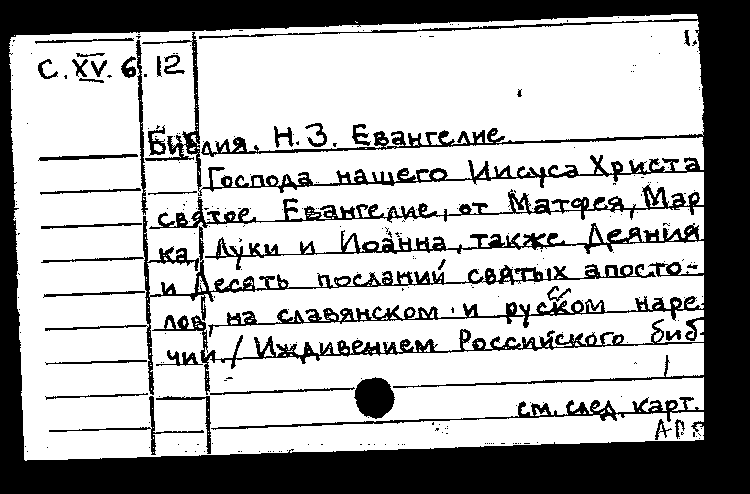 С. XV. 6. 12
Библия. Н. З. Евангелие.
Господа нашего Иисуса Христа
святое Евангелие, от Матфея, Мар
ка, Луки и Иоанна, также Деяния
и Десять посланий святых апосто-
лов, на славянском и руском наре-
чии. / Иждивением Российского биб-
см. след. карт.